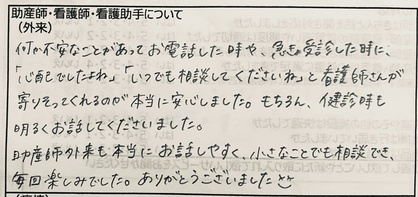 助産師・看護師・看護助手について
(外来)
何か不安なことがあってお電話した時や、急な受診した時に、
「心配でしたよね」「いつでも相談してくださいね」と看護師さんが
寄りそってくれるのが本当に安心しました。もちろん、健診時も
明るくお話してくださいました。
助産師外来も本当にお話しやすく、小さなことでも相談でき、
毎回楽しみでした。ありがとうございました